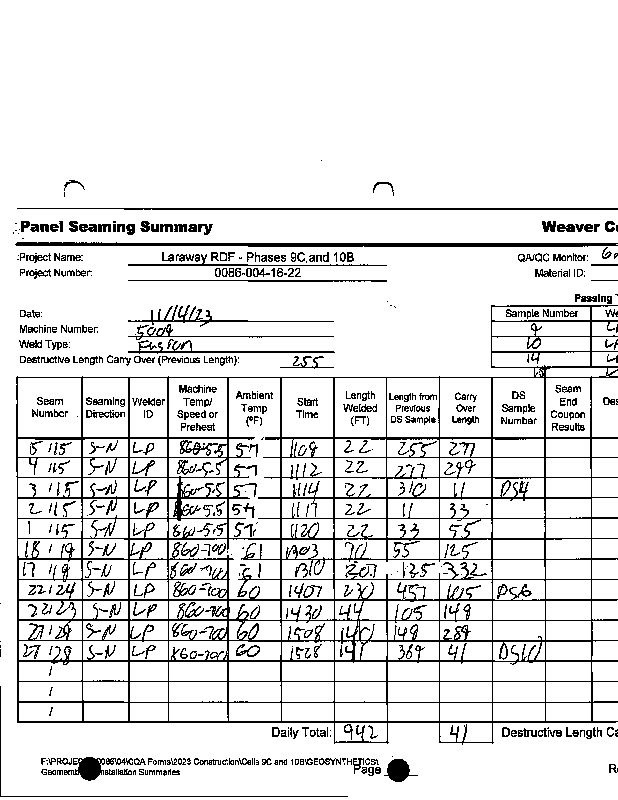 Panel Seaming Summary Weaver
Project Name: Laraway RDF - Phases 9C and 10B QA/QC Monitor:
Project Number: 0086-004-16-22 Material ID:
Passing
Date: 11/14/23 Sample Number
Machine Number: 5009 9
Weld Type: Fusion 10
Destructive Length Carry Over (Previous Length): 255 14
Seam Number Seaming Direction Welder ID Machine Temp/ Speed or Preheat Ambient Temp (°F) Start Time Length Welded (FT) Length from Previous DS Sample Carry Over Length DS Sample Number Seam End Coupon Results
5 115 S-N LP 860-5.5 57 1109 22 255 277
4 115 S-N LP 860-5.5 57 1112 22 277 299
3 115 S-N LP 860-5.5 57 1114 22 310 11 DS4
2 115 S-N LP 860-5.5 57 1117 22 11 33
1 115 S-N LP 860-5.5 57 1120 22 33 55
18 / 19 S-N LP 860-700 61 1303 70 55 125
17 / 19 S-N LP 860-700 61 1310 207 125 332
22 / 24 S-N LP 860-700 60 1407 230 457 105 DS6
22 / 23 S-N LP 860-700 60 1430 44 105 149
27 / 29 S-N LP 860-700 60 1508 140 149 289
27 / 28 S-N LP 860-700 60 1528 141 389 41 DS10
/
/
/
Daily Total: 942 41 Destructive Length
Geomemb nstallation Summaries Page